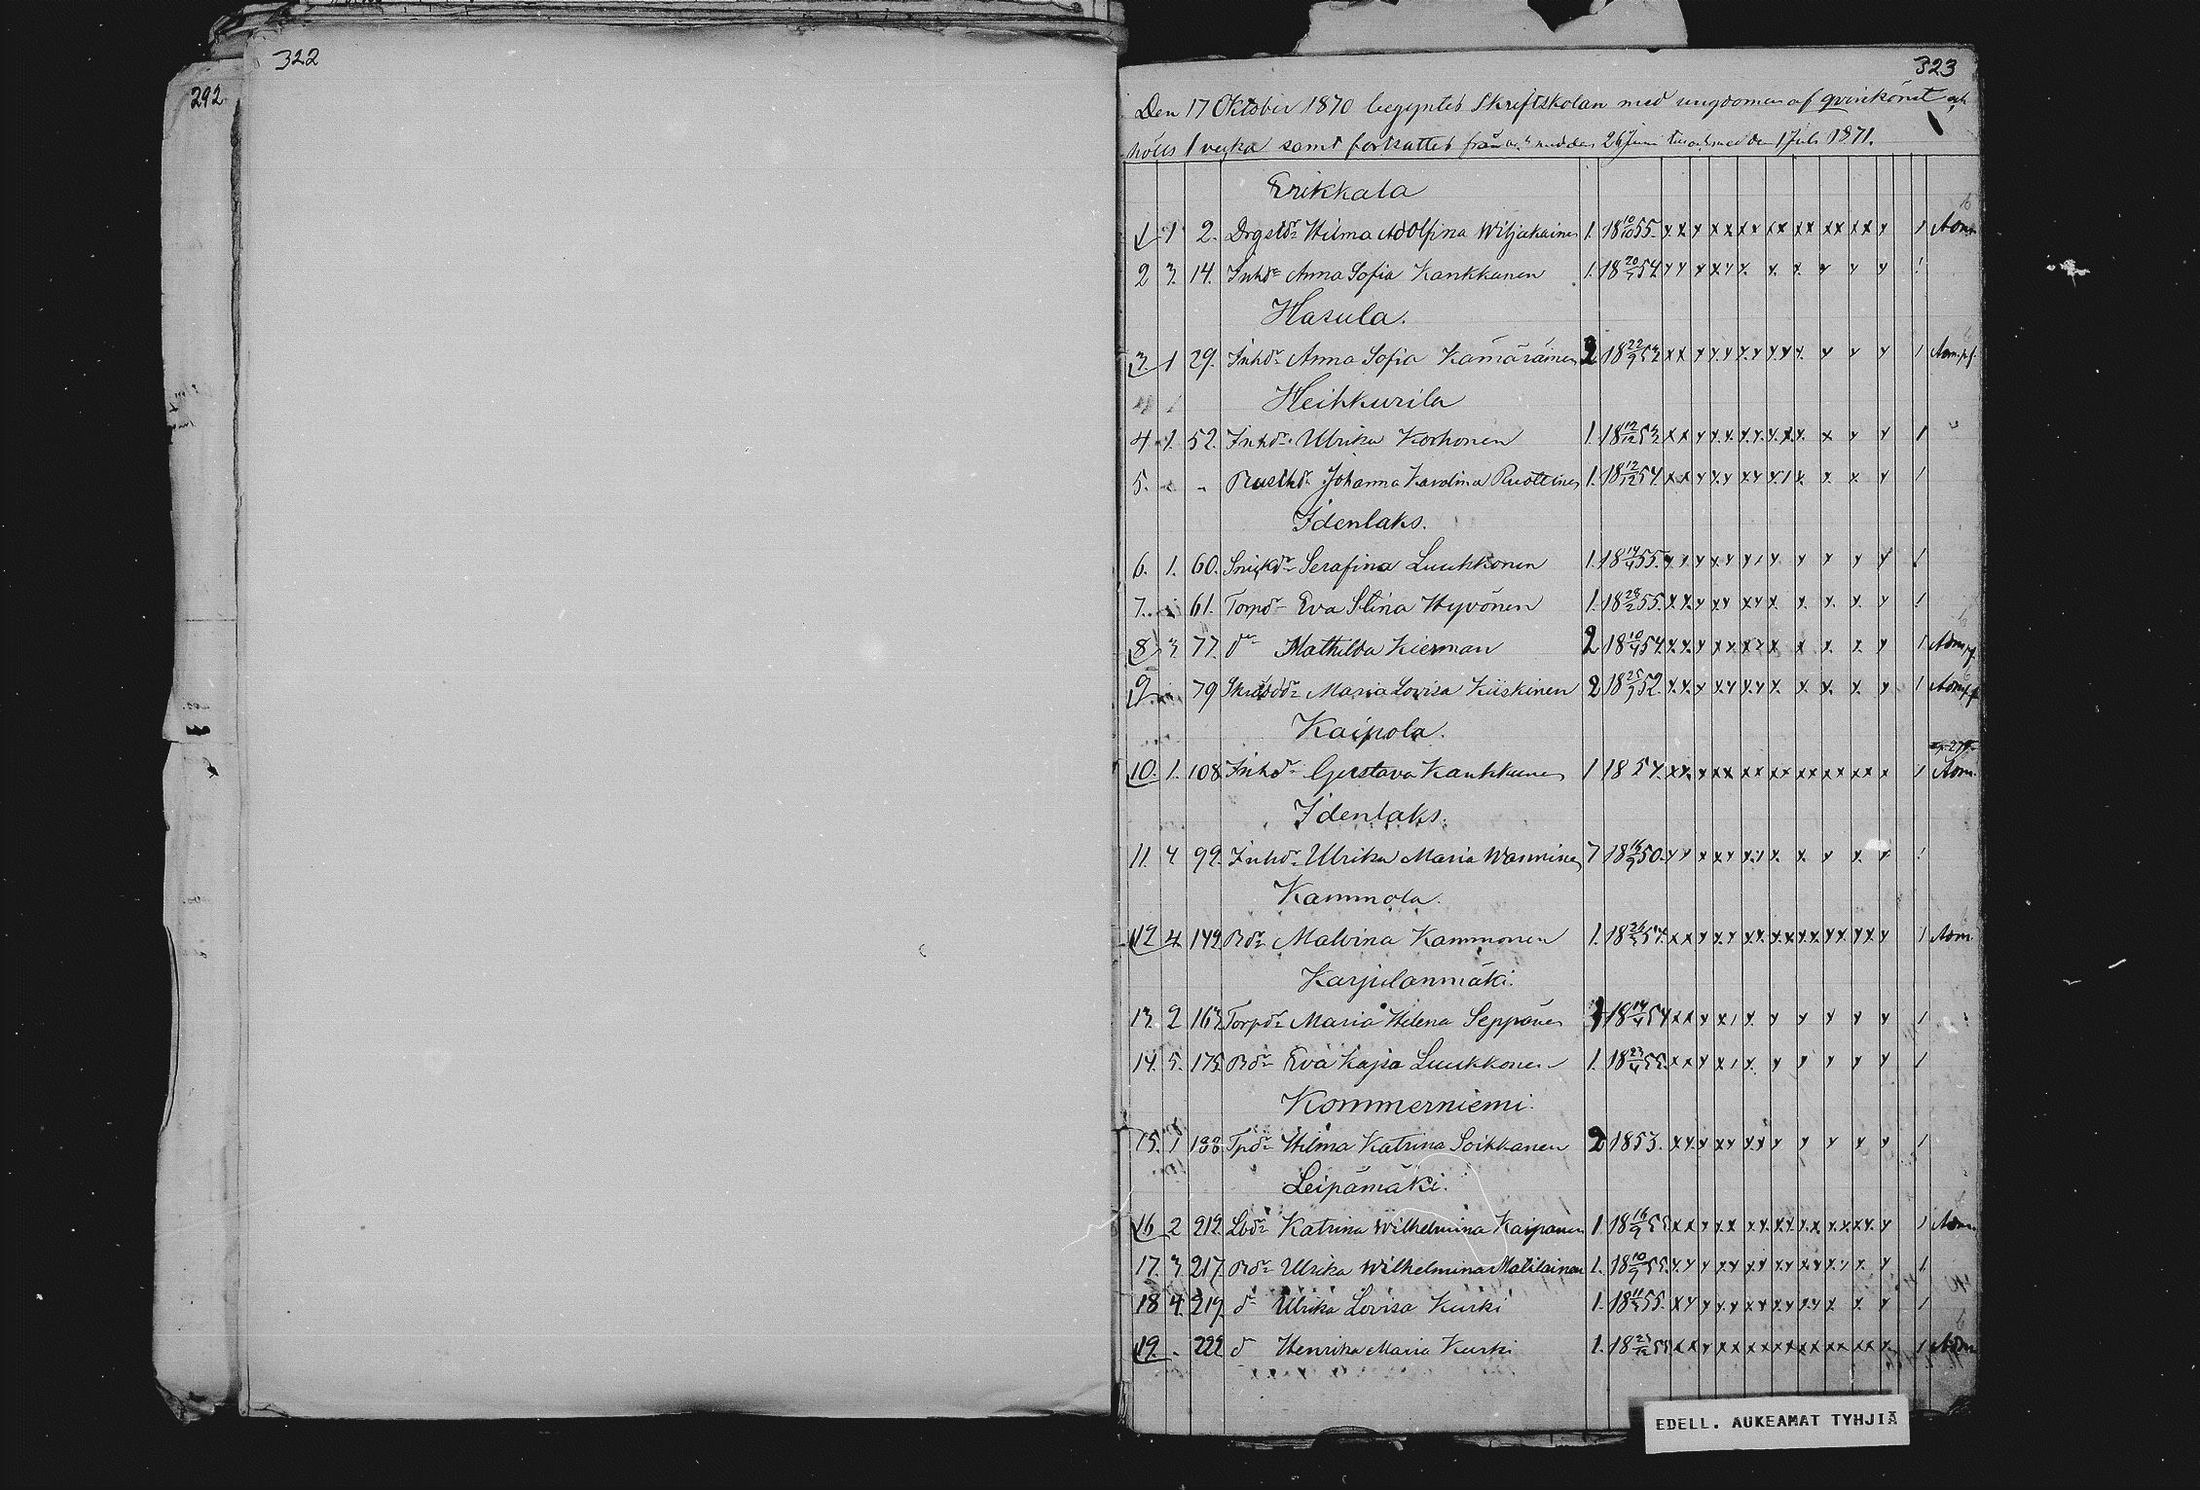 322
292
323
Den 17 Oktober 1870 begyntes Skriftskolan med ungdomen af qvinkönet och
hölls 1 vecka samt fortsattes från och med den 26 Juni till och med den 1 Juli 1871.
Erikkala
1 1 2. Drgstdr Hilma Adolfina Wiljakainen 1. 18 10/10 55. x x x x x x x x x x x x x x x 1 Adm
2 3. 14. Inhdr Anna Sofia Kankkunen 1. 18 54. x x x x x x x x x x x 1
Hasula.
3. 1 29. Inhdr Anna Sofia Kämäräinen 2 18 22/9 53 x x x x x x x x x x x x 1 Adm. p. f.
Heikkurila
4 1. 52. Inhdr Ulrika Korhonen 1. 18 12/12 53 x x x x x x x x x x x x 1
5. - - Rusthdr Johanna Karolina Ruottinen 1. 18 12/12 54. x x x x x x x x x x x x 1
Idenlaks.
6. 1. 60. Snickdr Serafina Luukkonen 1. 18 14/4 55. x x x x x x x x x x x x 1
7. 61. Torpdr Eva Stina Hyvönen 1. 18 28/2 55. x x x x x x x x x x x x 1
8. 3 77. dr Mathilda Kierman 2 18 10/4 54. x x x x x x x x x x x x 1 Adm. p. f.
9. 79 Maria Lovisa Kiiskinen 2 18 25/9 52. x x x x x x x x x x x x 1 Adm. p. f.
Kaipola.
10. 1. 108 Inhdr Gustava Kankkunen 1 18 54. x x x x x x x x x x x x x x 1 Adm.
Idenlaks.
11. 4 99. Inhdr Ulrika Maria Wänninen 7 18 50. x x x x x x x x x x x 1
Kammola.
12 4 149 Bdr Malvina Kammonen 1. 18 54. x x x x x x x x x x x x x x x 1 Adm
Karjulanmäki.
13. 2 163. Torpdr Maria Helena Seppänen 1 18 14/4 54 x x x x x x x x x x 1
14. 5. 175. Bdr Eva Kajsa Luukkonen 1. 18 23/4 55. x x x x x x x x x x 1
Kommerniemi.
15. 1 188 Tpdr Hilma Katrina Soikkanen 2 1853. x x x x x x x x x x x x 1
Leipämäki.
16 2 212. Lbdr Katrina Wilhelmina Kaipanen 1 18 16/9 55 x x x x x x x x x x x x x x x 1 Adm
17. 3. 217. Bdr Ulrika Wilhelmina Malilainen 1. 18 10/9 55. x x x x x x x x x x x x x 1
18 4. 219. dr Ulrika Lovisa Kurki 1. 18 55. x x x x x x x x x x x x x 1
19. - 222 d Henrika Maria Kurki 1. 18 55 x x x x x x x x x x x x x x x 1 Adm
EDELL. AUKEAMAT TYHJIÄ